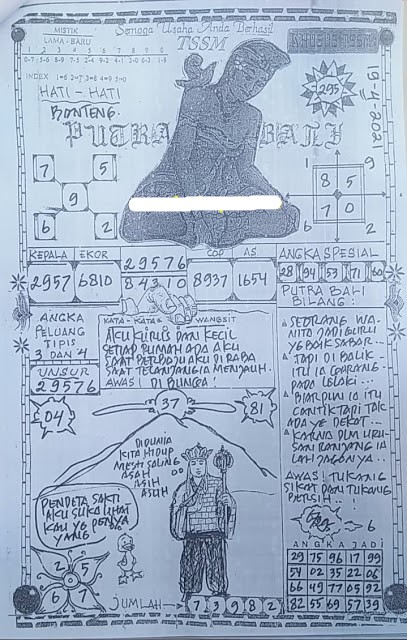 Semoga Usaha Anda Berhasil
TSSM
MISTIK
LAMA - BARU
1 2 3 4 5 6 7 8 9 0
INDEX 1=6 2=7 3=8 4=9 5=0
HATI - HATI
BONTENG.
295
19-4-2021
PUTRA BALI
7 5
9
6 2
1 6
8 5
7 0
2
KEPALA EKOR
2957 6810
29576
84310
COP AS
8937 1654
ANGKA SPESIAL
28 94 53 71 60
ANGKA
PELUANG
TIPIS
3 DAN 4
UNSUR
29576
KATA - KATA WANGSIT
AKU KURUS DAN KECIL
SETIAP RUMAH ADA AKU
SAAT BERBAJU AKU DI RABA
SAAT TELANJANG IA MENJAUH.
AWAS! DI BUNGA!
PUTRA BALI
BILANG:
SEORANG WA-
NITA JADI GURU
YG BAIK SABAR...
TAPI DI BALIK
ITU IA GARANG
PADA LELAKI...
BIARPUN IA ITU
CANTIK TAPI TAK
ADA YG DEKAT...
KARNA DLM URU-
SAN RANJANG IA
LAH JAGONYA..
AWAS! TUKANG
SIKAT DAN TUKANG
04
37
81
DIDUNIA
KITA HIDUP
MESTI SALING
ASAH
ASIH
ASUH
PENDETA SAKTI
AKU SUKA LIHAT
KAU YG PENYA
YANG
2 5
6 7
JUMLAH → 7 3 9 8 2
6
ANGKA JADI
29 75 96 17 99
54 02 35 22 06
66 49 77 05 92
82 55 69 57 39